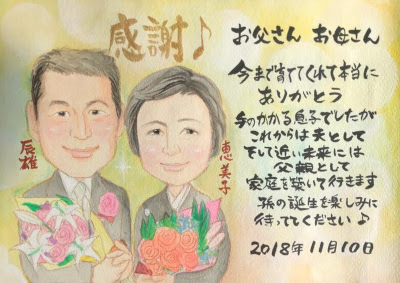 感謝♪
お父さん お母さん
今まで育ててくれて本当に
ありがとう
手のかかる息子でしたが
これからは夫として
そして近い未来には
父親として
家庭を築いて行きます
孫の誕生を楽しみに
待っててください♪
2018年11月10日
辰雄
恵美子